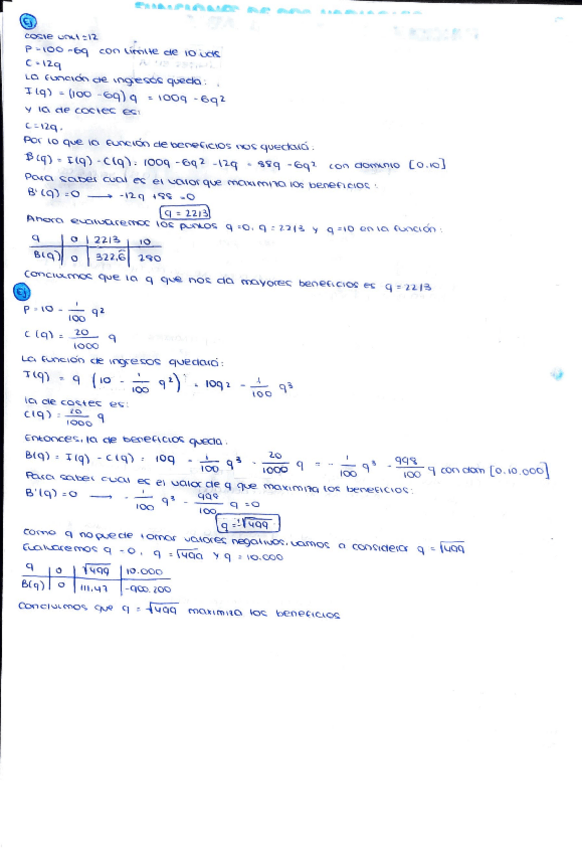 Ej
coste unit=12
P=100-6q con límite de 10 uds
C=12q
La función de ingresos queda:
I(q) = (100-6q)q = 100q - 6q²
y la de costes es:
C=12q.
Por lo que la función de beneficios nos quedará:
B(q) = I(q) - C(q) = 100q - 6q² - 12q = 88q - 6q² con dominio [0,10]
Para saber cual es el valor que maximiza los beneficios:
B'(q)=0 → -12q + 88 = 0
q = 22/3
Ahora evaluaremos los puntos q=0, q=22/3 y q=10 en la función:
q 0 22/3 10
B(q) 0 322,6 280
Concluimos que la q que nos da mayores beneficios es q=22/3
Ej
P = 10 - 1/100 q²
C(q) = 20/1000 q
La función de ingresos quedará:
I(q) = q (10 - 1/100 q²) = 10q2 - 1/100 q³
la de costes es:
C(q) = 20/1000 q
Entonces, la de beneficios queda:
B(q) = I(q) - C(q) = 10q - 1/100 q³ - 20/1000 q = - 1/100 q³ - 998/100 q con dom [0,10.000]
Para saber cual es el valor de q que maximiza los beneficios:
B'(q)=0 → - 1/100 q³ - 998/100 q = 0
q = ±√499
Como q no puede tomar valores negativos, vamos a considerar q = √499
Evaluaremos q = 0, q = √499 y q = 10.000
q 0 √499 10.000
B(q) 0 111,47 -900.200
Concluimos que q = √499 maximiza los beneficios